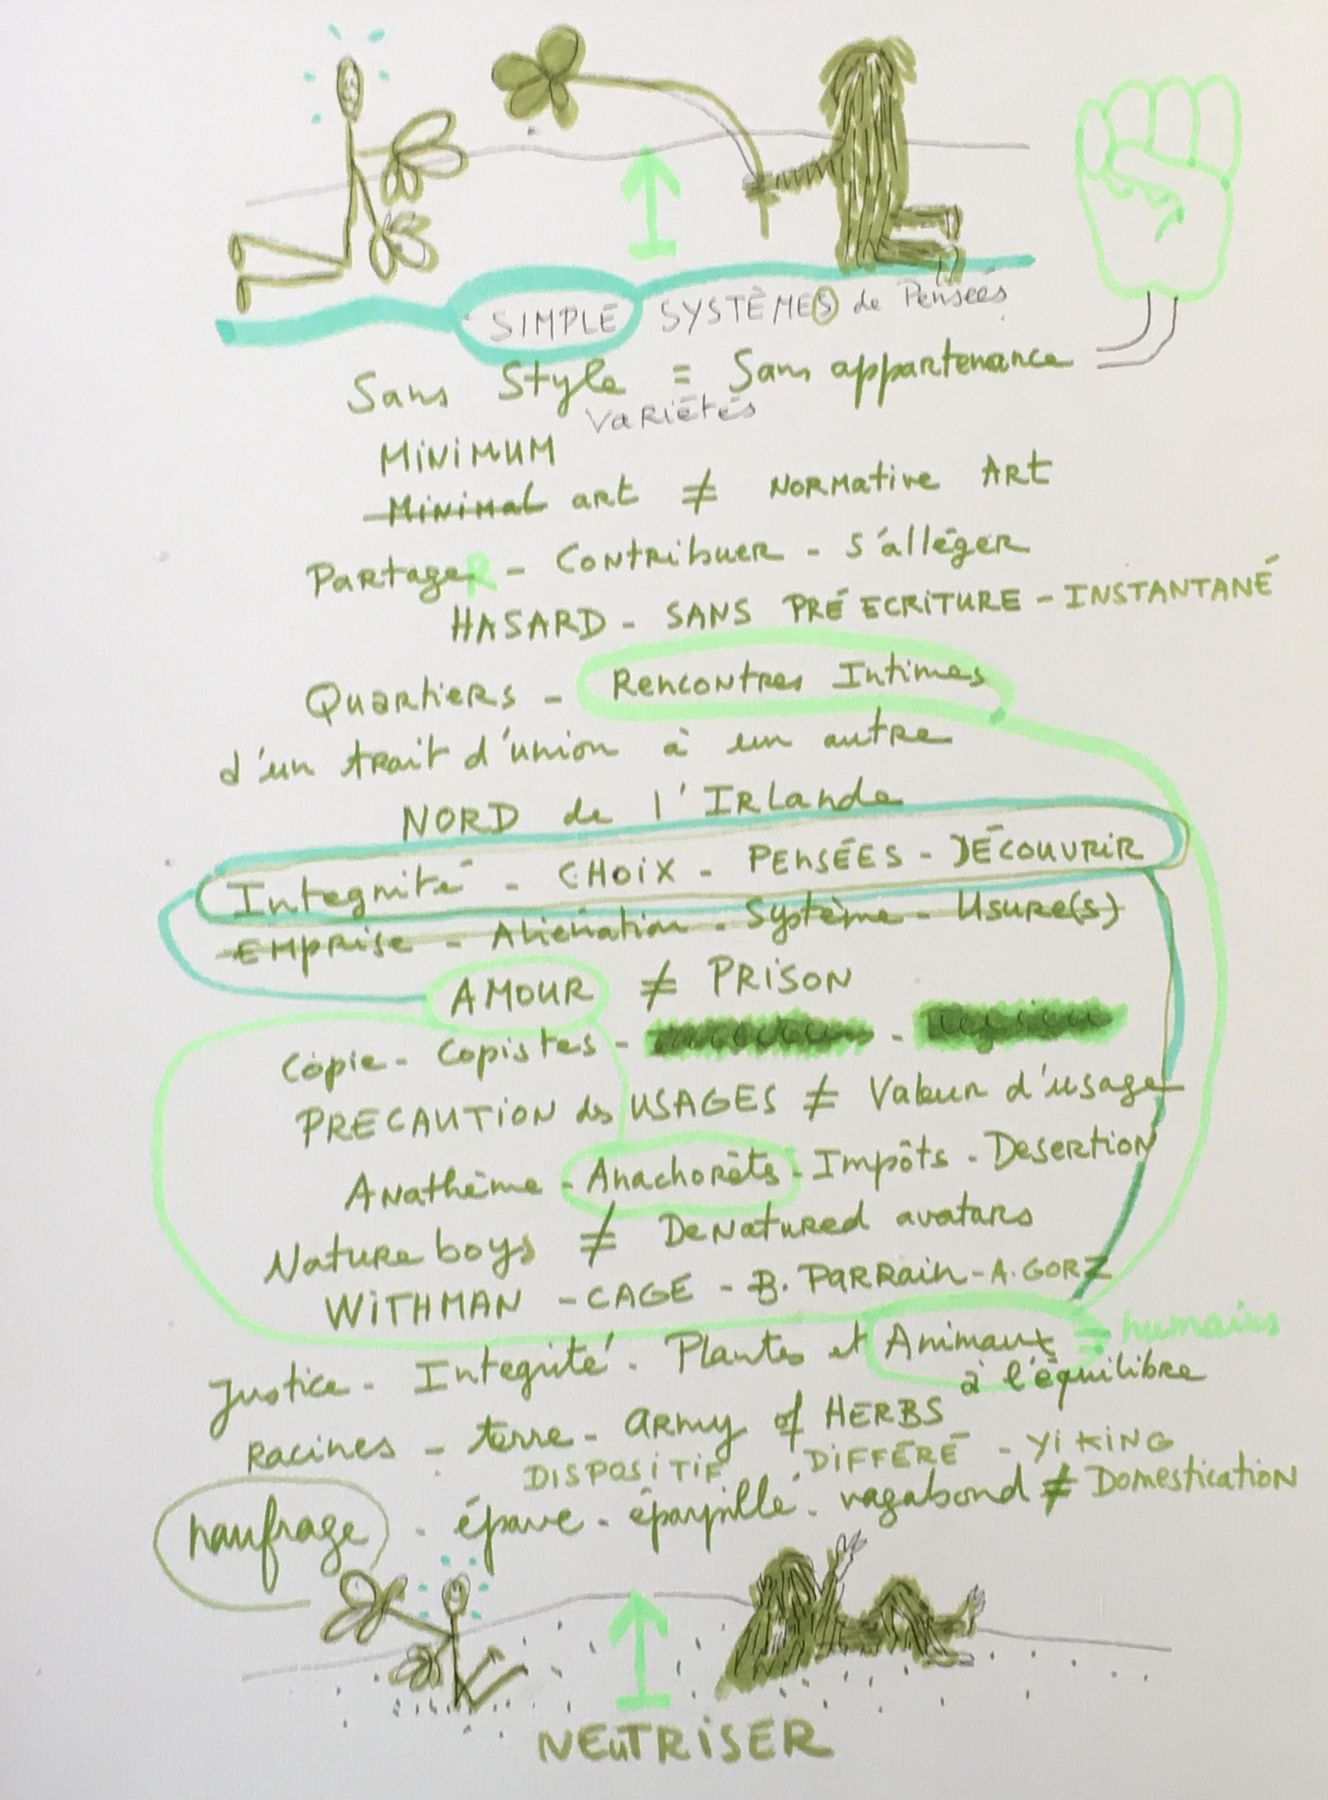 SIMPLE SYSTÈMES de Pensées
Sans Style = Sans appartenance
variétés
MINIMUM
Minimal art ≠ NORMative ART
PartageR - Contribuer - s'alléger
HASARD - SANS PRÉ ECRITURE - INSTANTANÉ
Quartiers - Rencontres Intimes
d'un trait d'union à un autre
NORD de l'Irlande
Integrité - CHOIX - PENSÉES - DÉCOUVRIR
EMprise - Aliénation - Système - Usure(s)
AMOUR ≠ PRISON
Copie - Copistes -
PRECAUTION des USAGES ≠ Valeur d'usage
Anathème - Anachorèts - Impôts - Desertion
Nature boys ≠ DeNatured avatars
WITHMAN - CAGE - B. PARRain - A. GORZ
Justice - Integrité - Plantes et Animaux = humains
à l'équilibre
Racines - terre - ARMy of HERBS
DISPOSITIF DIFFÉRÉ - YI KING
naufrage - épave - éparpillé - vagabond ≠ Domestication
NEuTRiSER